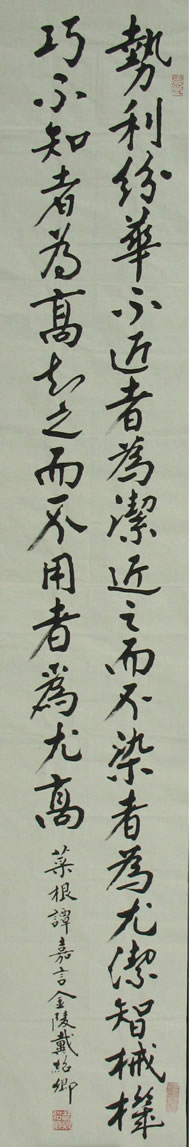 勢利紛華不近者為潔近之而不染者為尤潔智械機
巧不知者為高知之而不用者為尤高
菜根譚嘉言金陵戴紹卿